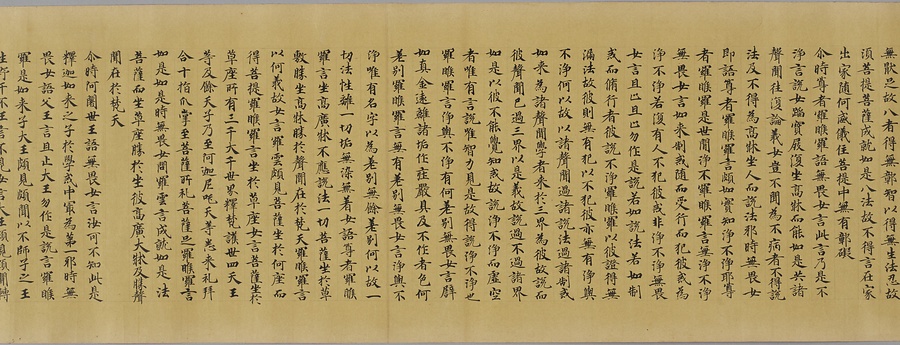 無厭已故八者得無郭智以得無生法忍故
須菩提菩薩成就如是八法故不得言在家
出家隨何威儀住菩提中無有郭礙
尒時尊者羅睺羅語無畏女言此言乃是不
淨言說女躡寶屐復坐高牀而能如是共諸
聲聞往復論義汝豈不聞為不病者不得說
法及不得為高牀坐人而說法耶時無畏女
即語尊者羅睺羅言大德頗如實知淨不淨耶尊
者羅睺羅是世閒淨不羅睺羅言無淨不淨
無畏女言如來制戒隨而受行而犯彼戒為
淨不淨若復有人不犯彼戒非淨不淨無畏
女言且止且止勿作是說法若如說法若如制
戒而脩行者彼說不淨諸羅睺羅以彼證得無
漏法故彼則無有犯以不犯彼亦無有淨與
不淨何以故以諸聲聞過諸說法過諸制戒
如來為諸聲聞學者來於三界為彼故說而
彼聲聞已過三界以是義故說過不過諸界
如是以彼不能覺知戒故說淨不淨而虛空
者唯有言說唯智力見是故得說淨不淨也
羅睺羅言淨與不淨有何差別無畏女言辟
如真金遠離諸垢作莊嚴具及不作者色何
差別羅睺羅言無有差別無畏女言淨與不
淨唯有名字以為差別無餘差別何以故一
切法性離一切垢無染無著女語尊者羅睺
羅言坐高廣牀不應說法一切菩薩坐於草
敷勝坐高牀勝於聲聞在於梵天羅睺羅言
以何義故女言羅雲頗見菩薩坐於何座而
得菩提羅睺羅言坐於草座女言菩薩坐於
草座所有三千大千世界釋梵護世四天王
等及餘天子乃至阿迦尼吒天等悉來礼拜
合十指爪掌至菩薩所礼菩薩足羅睺羅言
如是如是時無畏女聞羅雲言成就如是法
菩薩而坐草座勝於坐彼高廣大牀及勝聲
聞在於梵天
尒時阿闍世王語無畏女言汝可不知此是
釋迦如來之子於學戒中冣為苐一耶時無
畏女語父王言且止大王勿作是說言羅睺
羅是如來子大王頗見頗聞以不師子之王